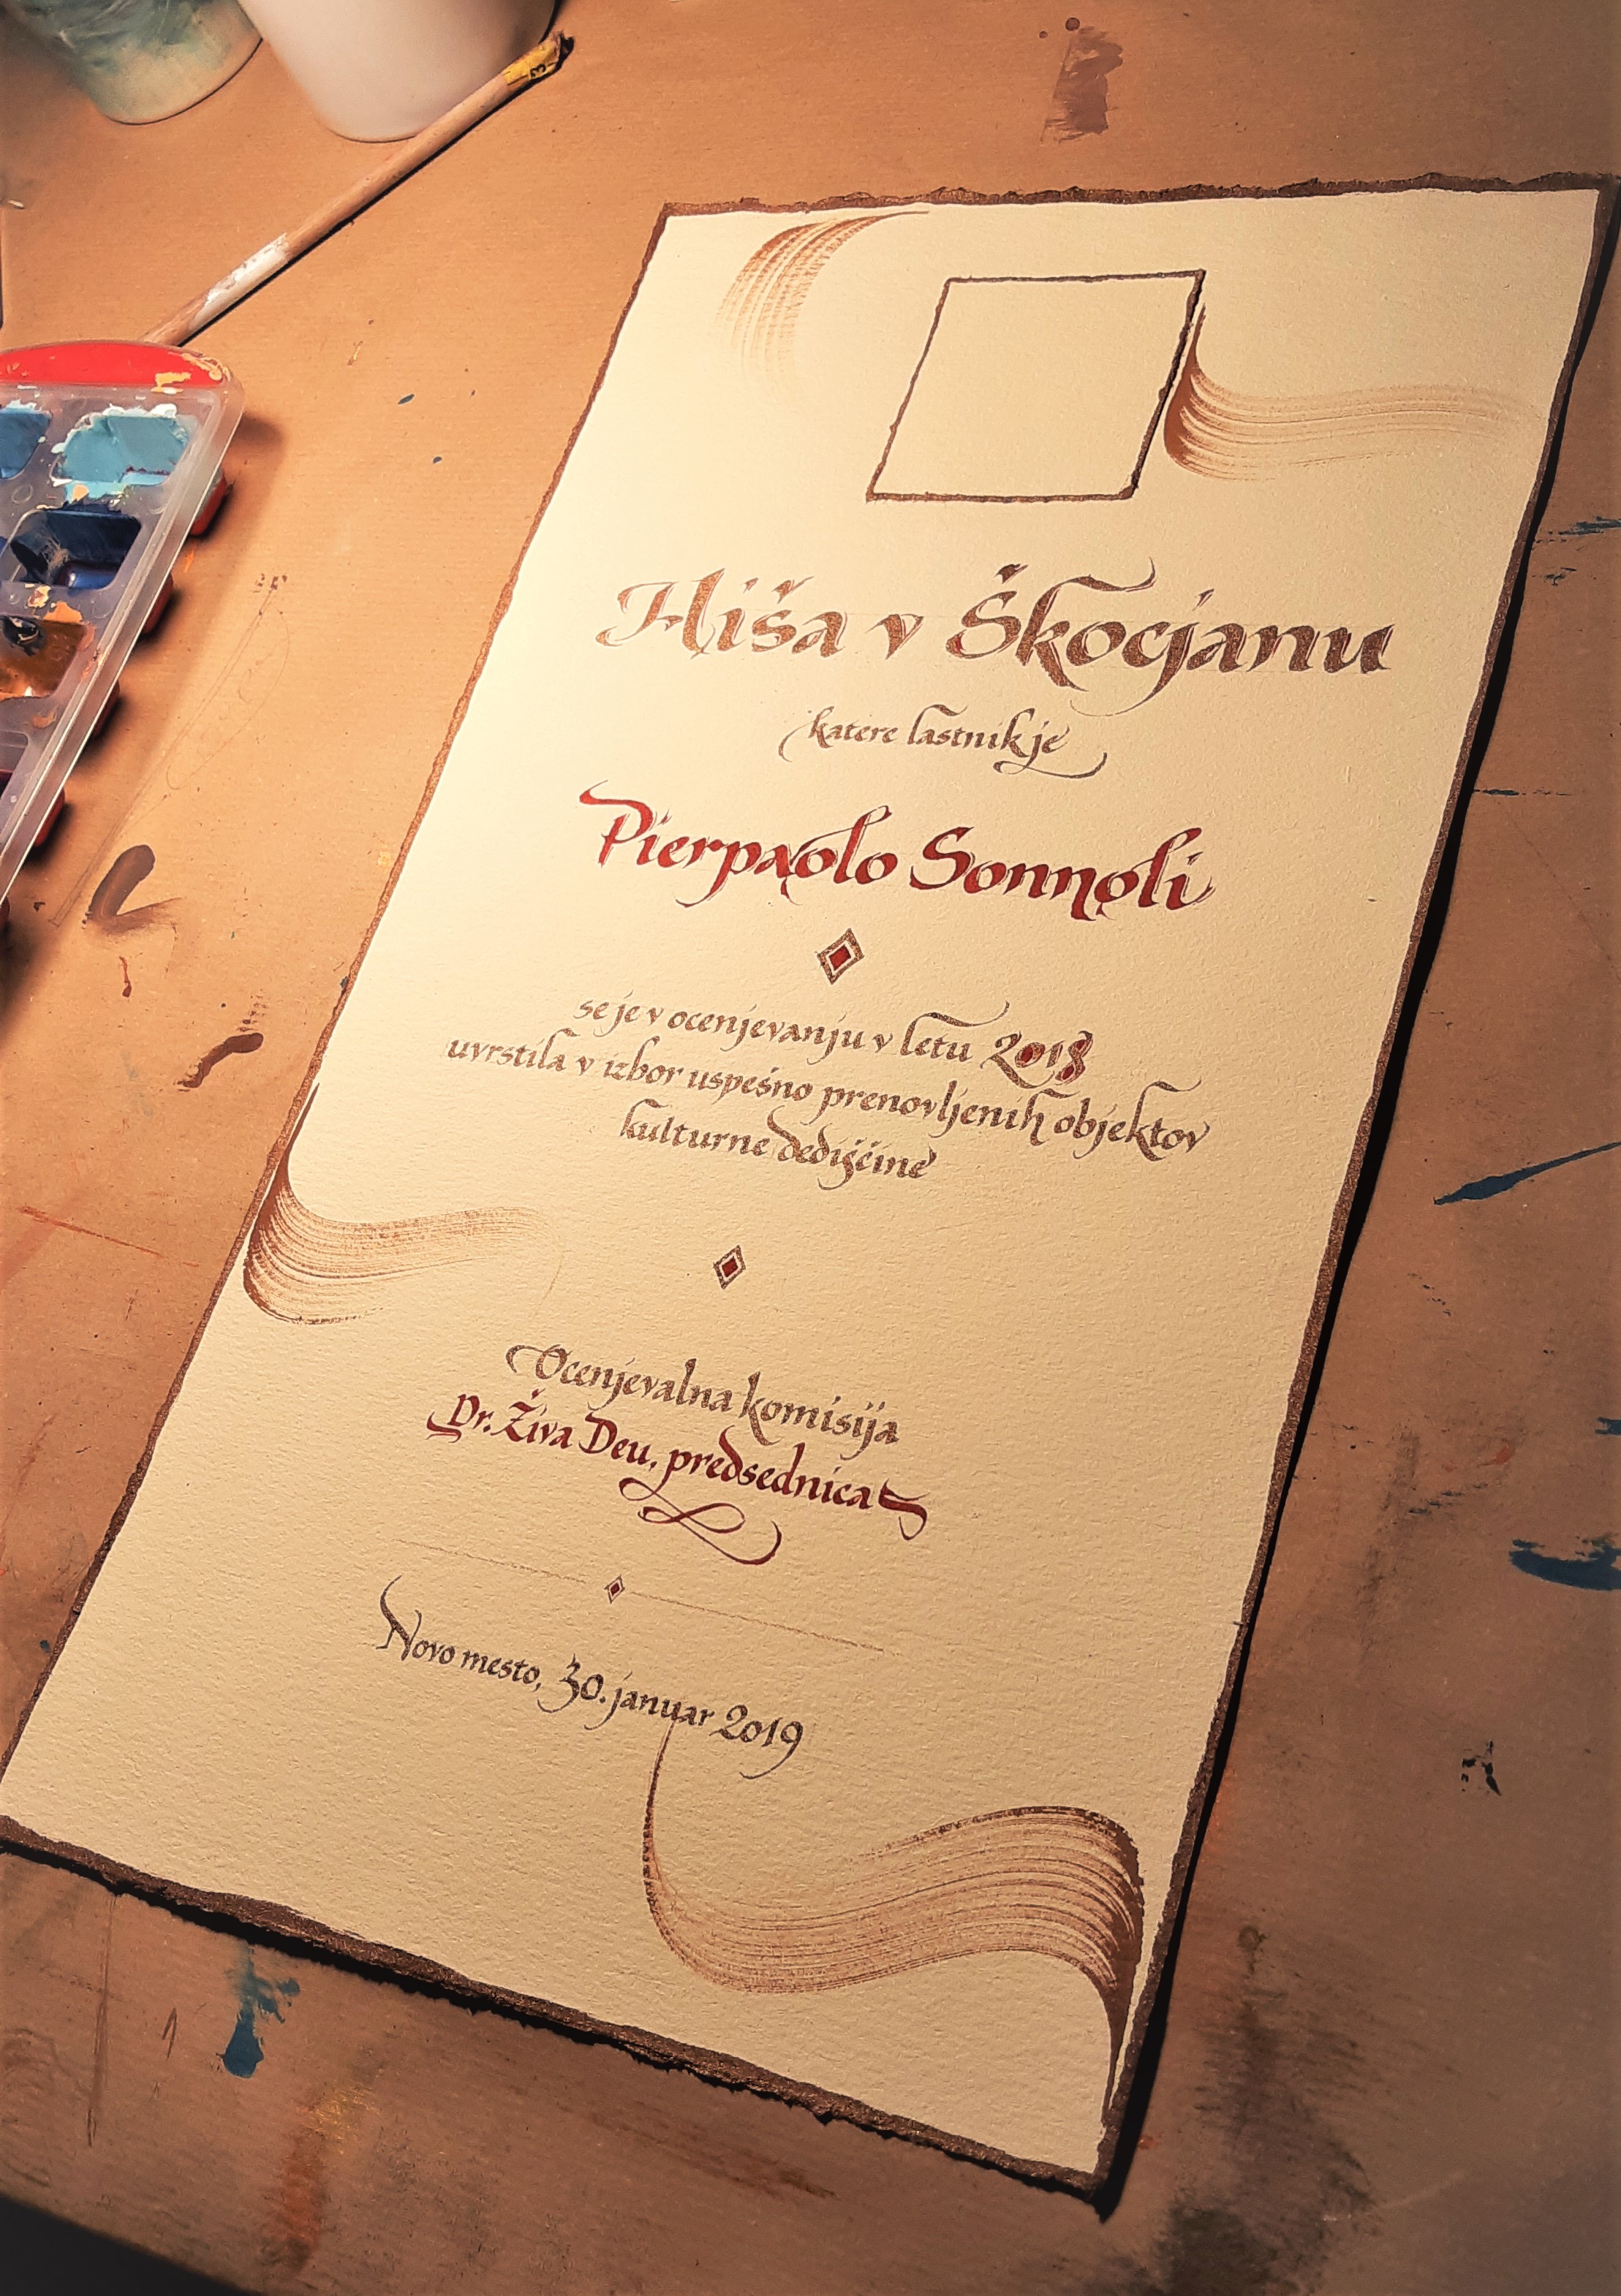 Hiša v Škocjanu
katere lastnik je
Pierpaolo Sonnoli
se je v ocenjevanju v letu 2018
uvrstila v izbor uspešno prenovljenih objektov
kulturne dediščine
Ocenjevalna komisija
Dr. Živa Deu, predsednica
Novo mesto, 30. januar 2019